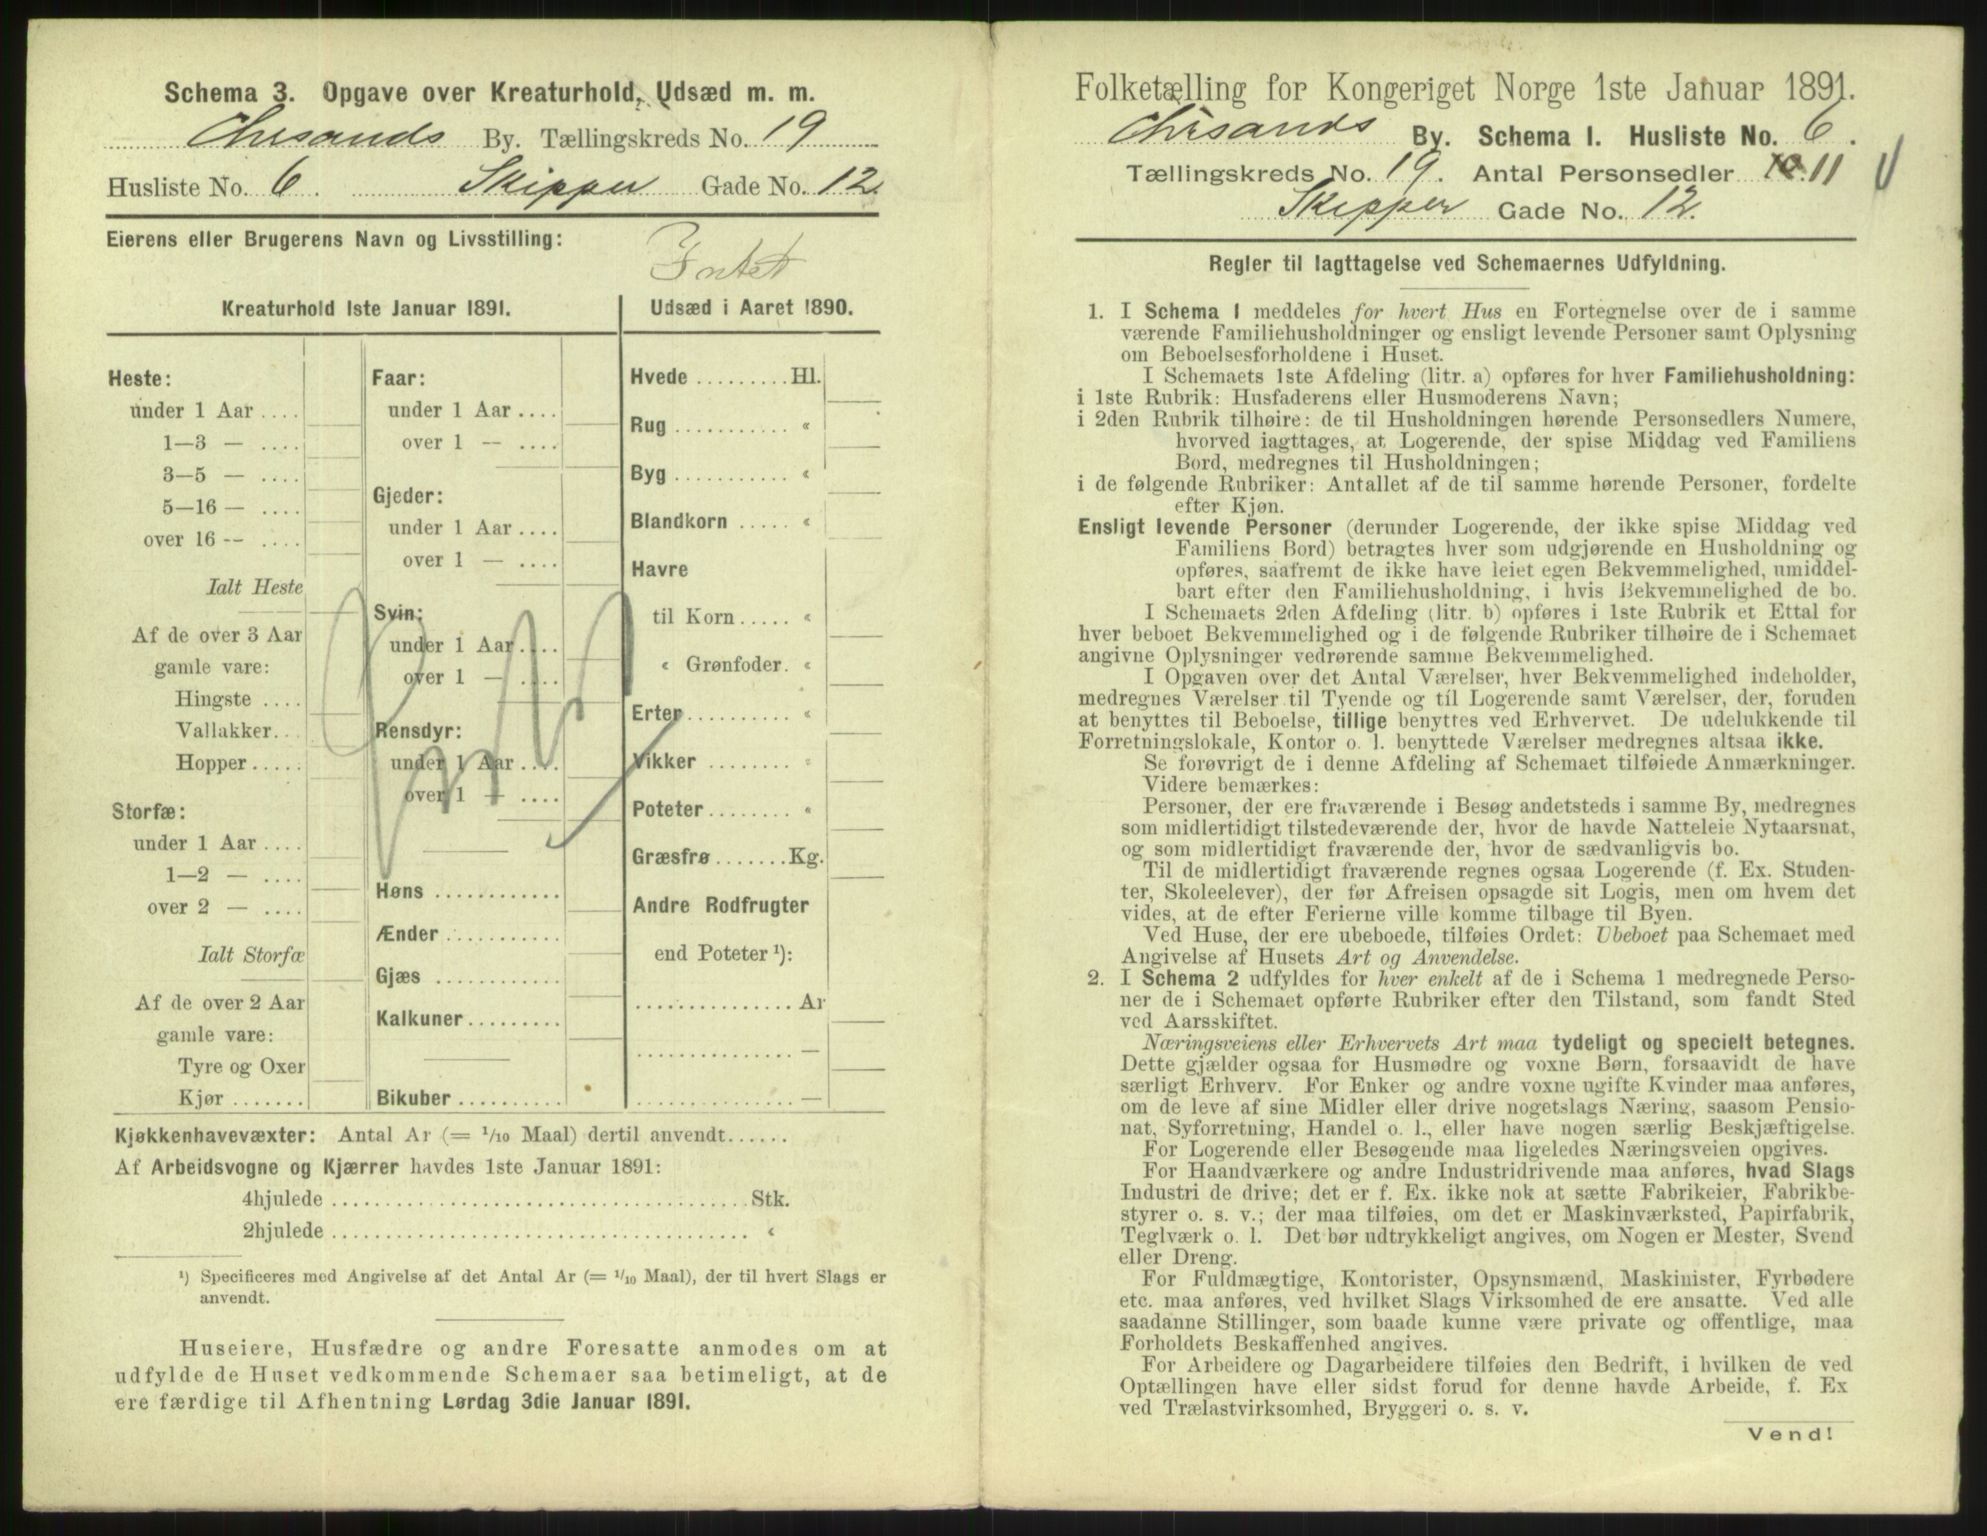 Schema 3. Opgave over Kreaturhold, Udsæd m. m.
Chrsands By. Tællingskreds No. 19
Husliste No. 6. Skipper Gade No. 12.
Eierens eller Brugerens Navn og Livsstilling:
Intet
Kreaturhold 1ste Januar 1891.
Heste:
under 1 Aar ....
1—3 — ....
3—5 — ....
5—16 — ....
over 16 -- ....
Ialt Heste
Af de over 3 Aar
gamle vare:
Hingste ....
Vallakker...
Hopper.....
Storfæ:
under 1 Aar ....
1—2 — ....
over 2 — ....
Ialt Storfæ
Af de over 2 Aar
gamle vare:
Tyre og Oxer
Kjør .......
Faar:
under 1 Aar ....
over 1 — ....
Gjeder:
under 1 Aar ....
over 1 — ....
Svin:
under 1 Aar....
over 1 — ....
Rensdyr:
under 1 Aar ....
over 1 — ....
Høns ............
Ænder ...........
Gjæs ............
Kalkuner.........
Bikuber ..........
Udsæd i Aaret 1890.
Hvede .........Hl.
Rug ........... «
Byg ........... «
Blandkorn ..... «
Havre
til Korn..... «
« Grønfoder. «
Erter.......... «
Vikker ........ «
Poteter........ «
Græsfrø .......Kg.
Andre Rodfrugter
end Poteter ¹):
...............Ar
...............—
...............—
Kjøkkenhavevæxter: Antal Ar (= 1/10 Maal) dertil anvendt......
Af Arbeidsvogne og Kjærrer havdes 1ste Januar 1891:
4hjulede .....................................Stk.
2hjulede ..................................... «
¹) Specificeres med Angivelse af det Antal Ar (= 1/10 Maal), der til hvert Slags er
anvendt.
Huseiere, Husfædre og andre Foresatte anmodes om at
udfylde de Huset vedkommende Schemaer saa betimeligt, at de
ere færdige til Afhentning Lørdag 3die Januar 1891.
Folketælling for Kongeriget Norge 1ste Januar 1891.
Chrsands By. Schema I. Husliste No. 6.
Tællingskreds No. 19. Antal Personsedler 10. 11
Skipper Gade No. 12.
Regler til Iagttagelse ved Schemaernes Udfyldning.
1. I Schema I meddeles for hvert Hus en Fortegnelse over de i samme
værende Familiehusholdninger og ensligt levende Personer samt Oplysning
om Beboelsesforholdene i Huset.
I Schemaets 1ste Afdeling (litr. a) opføres for hver Familiehusholdning:
i 1ste Rubrik: Husfaderens eller Husmoderens Navn;
i 2den Rubrik tilhøire: de til Husholdningen hørende Personsedlers Numere,
hvorved iagttages, at Logerende, der spise Middag ved Familiens
Bord, medregnes til Husholdningen;
i de følgende Rubriker: Antallet af de til samme hørende Personer, fordelte
efter Kjøn.
Ensligt levende Personer (derunder Logerende, der ikke spise Middag ved
Familiens Bord) betragtes hver som udgjørende en Husholdning og
opføres, saafremt de ikke have leiet egen Bekvemmelighed, umiddel-
bart efter den Familiehusholdning, i hvis Bekvemmelighed de bo.
I Schemaets 2den Afdeling (litr. b) opføres i 1ste Rubrik et Ettal for
hver beboet Bekvemmelighed og i de følgende Rubriker tilhøire de i Schemaet
angivne Oplysninger vedrørende samme Bekvemmelighed.
I Opgaven over det Antal Værelser, hver Bekvemmelighed indeholder,
medregnes Værelser til Tyende og til Logerende samt Værelser, der, foruden
at benyttes til Beboelse, tillige benyttes ved Erhvervet. De udelukkende til
Forretningslokale, Kontor o. l. benyttede Værelser medregnes altsaa ikke.
Se forøvrigt de i denne Afdeling af Schemaet tilføiede Anmærkninger.
Videre bemærkes:
Personer, der ere fraværende i Besøg andetsteds i samme By, medregnes
som midlertidigt tilstedeværende der, hvor de havde Natteleie Nytaarsnat,
og som midlertidigt fraværende der, hvor de sædvanligvis bo.
Til de midlertidigt fraværende regnes ogsaa Logerende (f. Ex. Studen-
ter, Skoleelever), der før Afreisen opsagde sit Logis, men om hvem det
vides, at de efter Ferierne ville komme tilbage til Byen.
Ved Huse, der ere ubeboede, tilføies Ordet: Ubeboet paa Schemaet med
Angivelse af Husets Art og Anvendelse.
2. I Schema 2 udfyldes for hver enkelt af de i Schema 1 medregnede Perso-
ner de i Schemaet opførte Rubriker efter den Tilstand, som fandt Sted
ved Aarsskiftet.
Næringsveiens eller Erhvervets Art maa tydeligt og specielt betegnes.
Dette gjælder ogsaa for Husmødre og voxne Børn, forsaavidt de have
særligt Erhverv. For Enker og andre voxne ugifte Kvinder maa anføres,
om de leve af sine Midler eller drive nogetslags Næring, saasom Pensio-
nat, Syforretning, Handel o. l., eller have nogen særlig Beskjæftigelse.
For Logerende eller Besøgende maa ligeledes Næringsveien opgives.
For Haandværkere og andre Industridrivende maa anføres, hvad Slags
Industri de drive; det er f. Ex. ikke nok at sætte Fabrikeier, Fabrikbe-
styrer o. s. v.; der maa tilføies, om det er Maskinværksted, Papirfabrik,
Teglværk o. l. Det bør udtrykkeligt angives, om Nogen er Mester, Svend
eller Dreng.
For Fuldmægtige, Kontorister, Opsynsmænd, Maskinister, Fyrbødere
etc. maa anføres, ved hvilket Slags Virksomhed de ere ansatte. Ved alle
saadanne Stillinger, som baade kunne være private og offentlige, maa
Forholdets Beskaffenhed angives.
For Arbeidere og Dagarbeidere tilføies den Bedrift, i hvilken de ved
Optællingen have eller sidst forud for denne havde Arbeide, f. Ex
ved Trælastvirksomhed, Bryggeri o. s. v.
Vend!